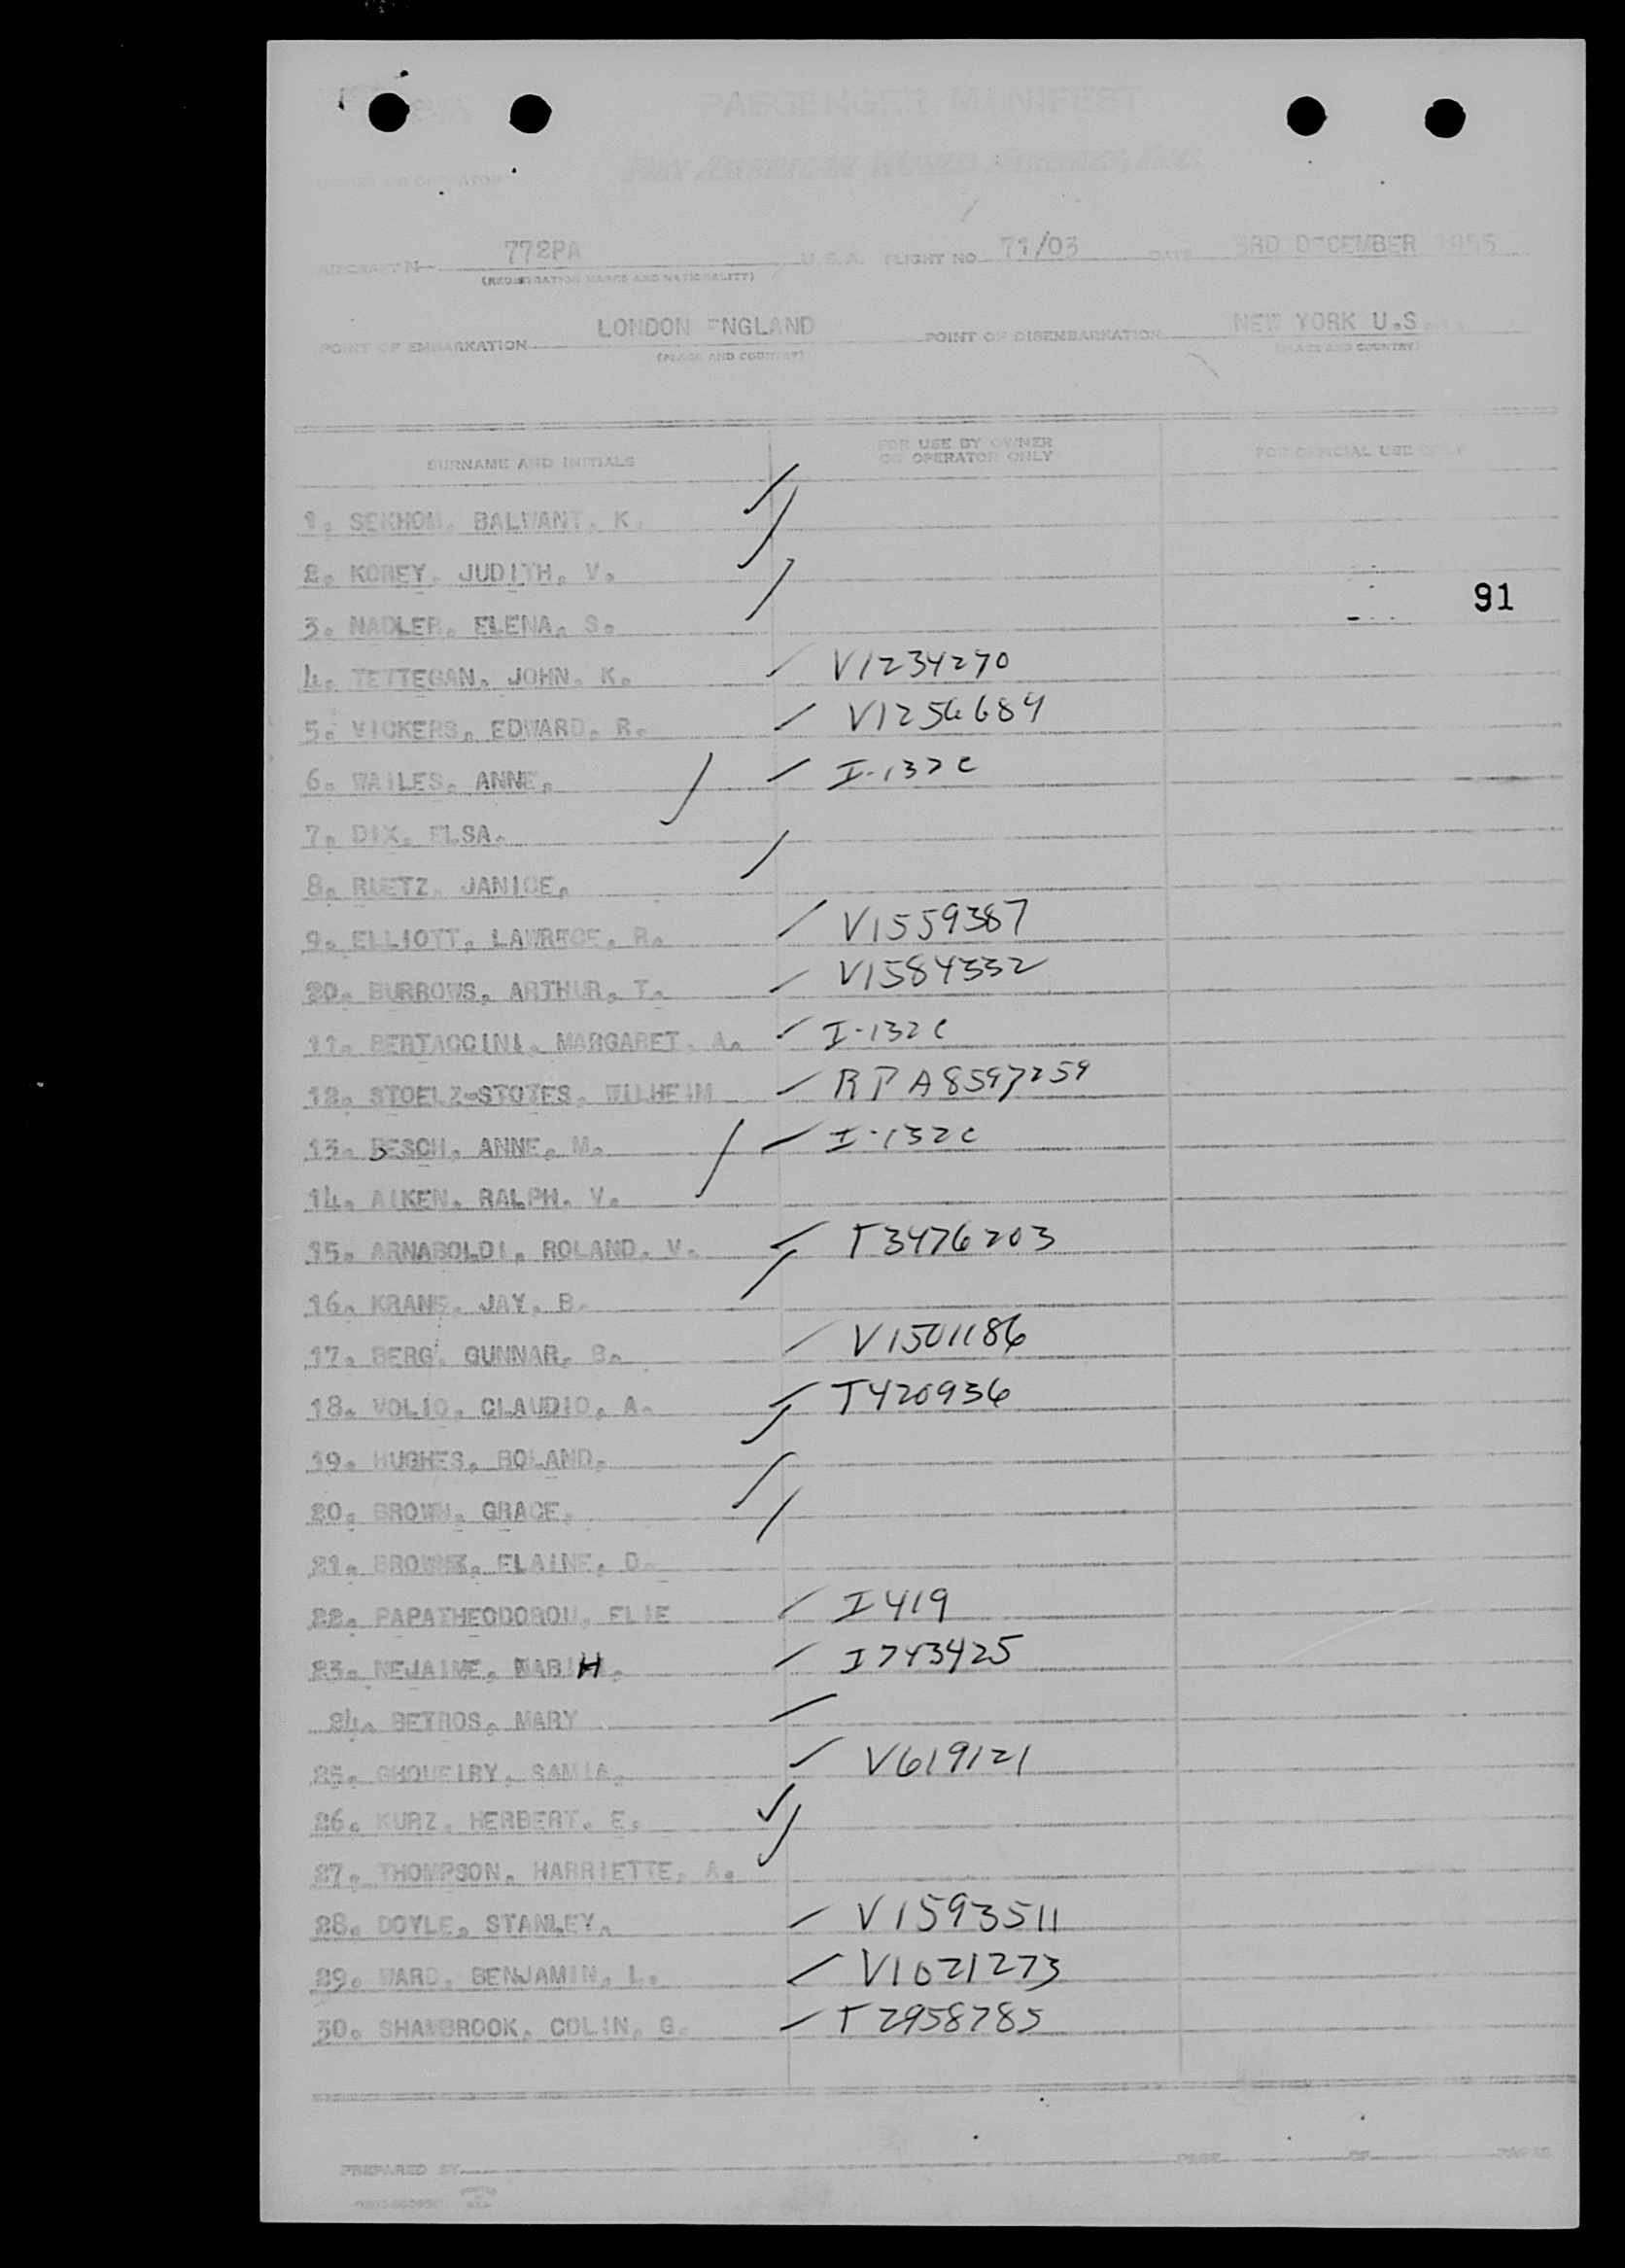 PASSENGER MANIFEST
Pan American World Airways, Inc.
OWNER OR OPERATOR
AIRCRAFT N 772PA U.S.A. FLIGHT NO. 71/03 DATE 3RD DECEMBER 1955
(REGISTRATION MARKS AND NATIONALITY)
POINT OF EMBARKATION LONDON ENGLAND POINT OF DISEMBARKATION NEW YORK U.S.
(PLACE AND COUNTRY) (PLACE AND COUNTRY)
SURNAME AND INITIALS FOR USE BY OWNER OR OPERATOR ONLY FOR OFFICIAL USE ONLY
1. SEKHON. BALWANT. K.
2. KOREY. JUDITH. V.
91
3. NADLER. ELENA. S.
4. TETTEGAN. JOHN. K. V1234270
5. VICKERS. EDWARD. R. V1256684
6. WAILES. ANNE. I-132C
7. DIX. ELSA.
8. RUETZ. JANICE.
9. ELLIOTT. LAWRECE. R. V1559387
20. BURROWS. ARTHUR. T. V1584332
11. BERTACCINI. MARGARET. A. I-132C
12. STOELZ-STOTES. WILHEIM RPA8597259
13. BESCH. ANNE. M. I-132C
14. AIKEN. RALPH. V.
15. ARNABOLDI. ROLAND. V. T3476203
16. KRANE. JAY. B.
17. BERG. GUNNAR. B. V1501186
18. VOLIO. CLAUDIO. A. T420936
19. HUGHES. ROLAND.
20. BROWN. GRACE.
21. ELAINE. D.
22. PAPATHEODOROU. ELIE I419
23. NEJAIME. I743425
24. BETROS. MARY
25. GHOUEIRY. SAMIA. V619121
26. KURZ. HERBERT. E.
27. THOMPSON. HARRIETTE. A.
28. DOYLE. STANLEY. V1593511
29. WARD. BENJAMIN. L. V1021273
30. SHAMBROOK. COLIN. G. T2958785
PREPARED BY PAGE OF PAGES